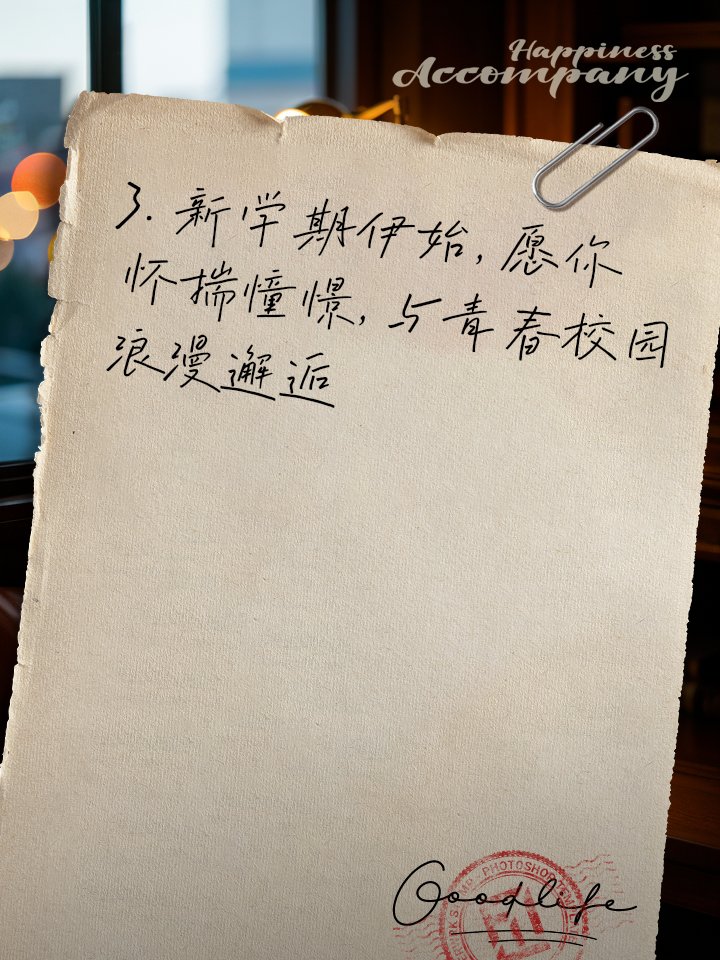 Happiness
Accompany
3. 新学期伊始, 愿你
怀揣憧憬, 与青春校园
浪漫邂逅
PHOTOSHOP
Goodlife